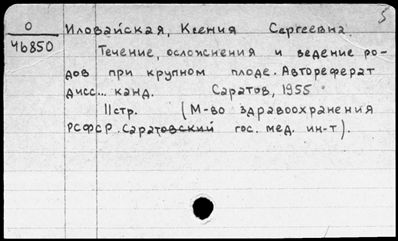 5
О
46850
Иловайская, Ксения Сергеевна.
Течение, осложнения и ведение ро-
дов при крупном плоде. Автореферат
дисс... канд. Саратов, 1955
11стр. (М-во здравоохранения
РСФСР. Саратовский гос. мед. ин-т).